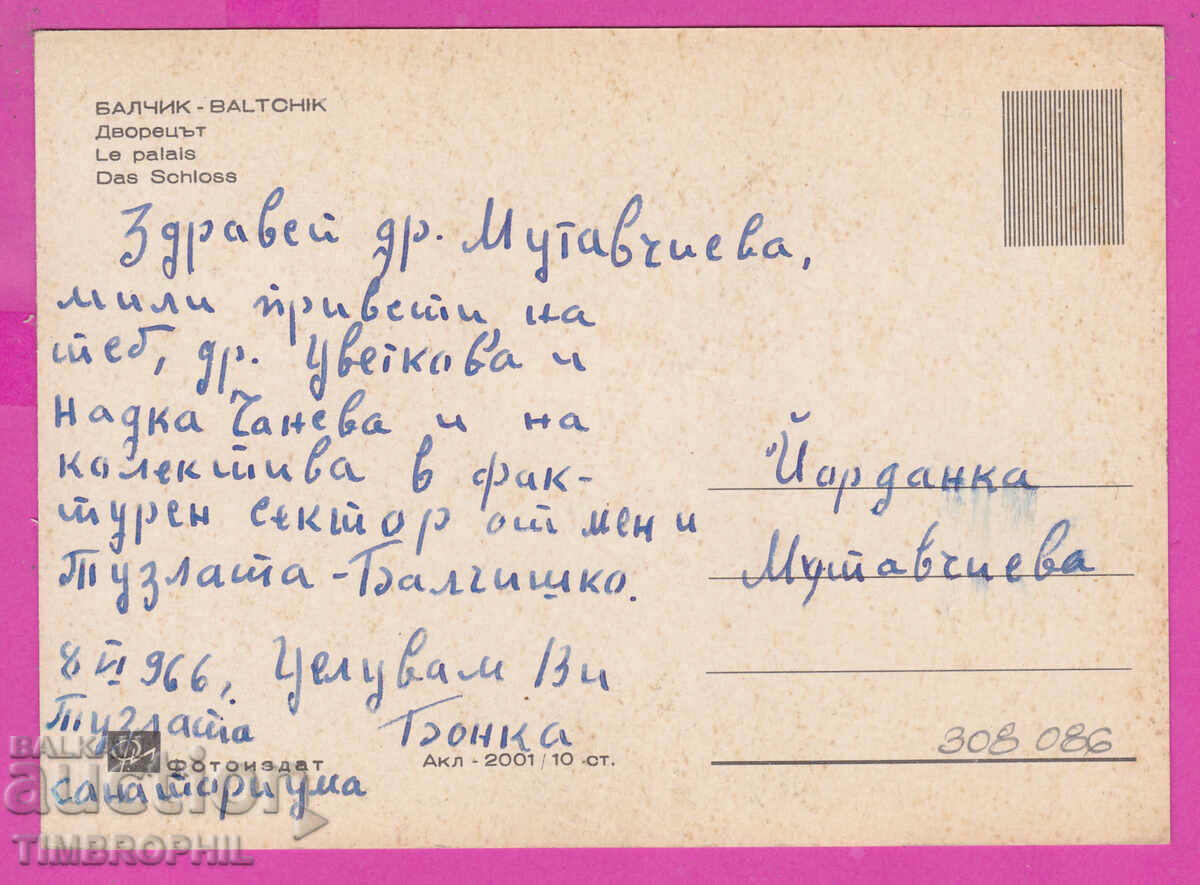 БАЛЧИК - BALTCHIK
Дворецът
Le palais
Das Schloss
Здравей др. Мутавчиева,
мили привети на
теб, др. Цветкова и
Надка Чанева и на
колектива в фак-
турен сектор от мен и
Тузлата - Балчишко.
8 VI 966, Целувам Ви
Тузлата Бонка
санаториума
Фотоиздат
Акл - 2001/10 ст.
Йорданка
Мутавчиева
308 086
BALKAN
auction
TIMBROPHIL